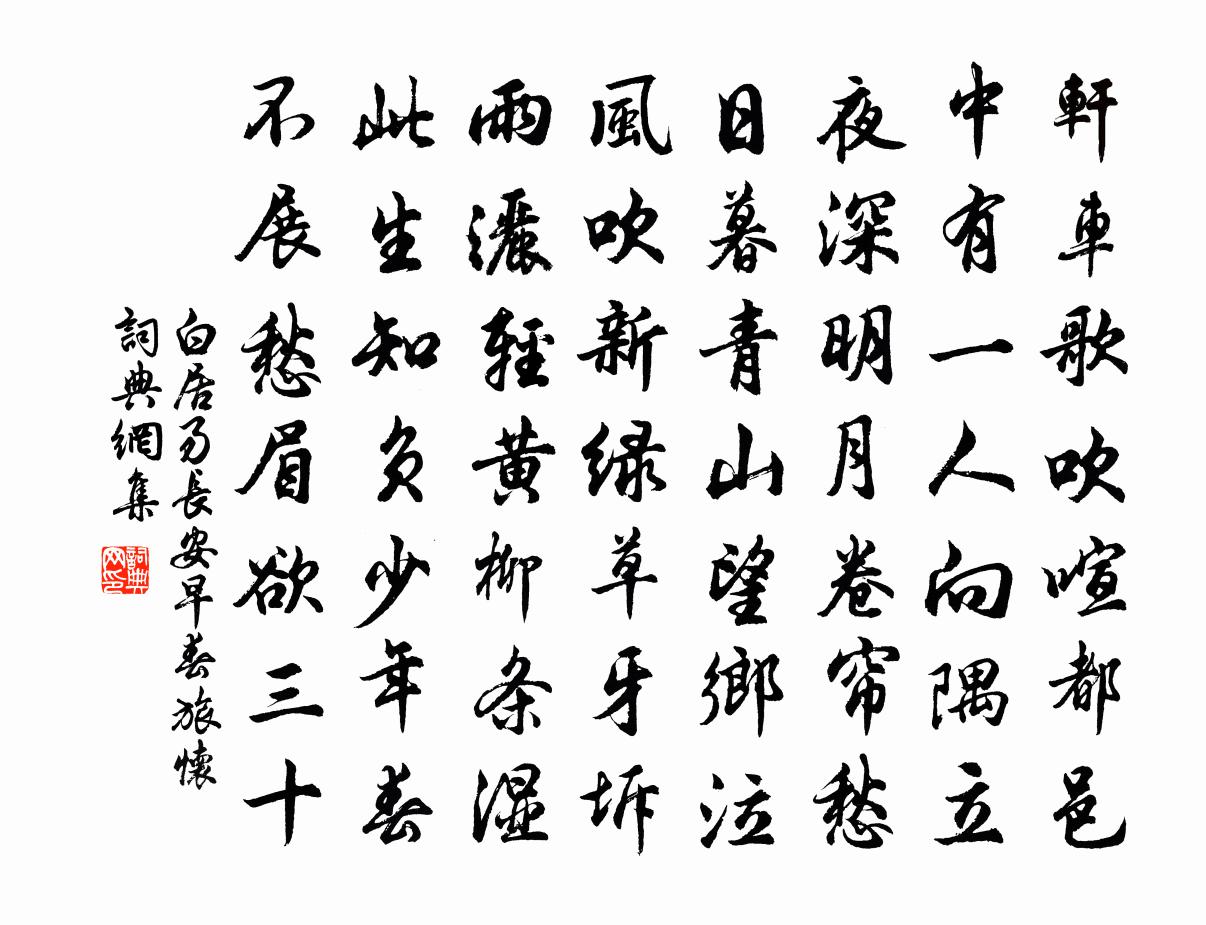 軒車歌吹喧都邑
中有一人向隅立
夜深明月卷帘愁
日暮青山望鄉泣
風吹新绿草牙坼
雨灑輕黃柳条湿
此生知负少年春
不展愁眉欲三十
白居易長安早春旅懷
詞典網集
詞典网印